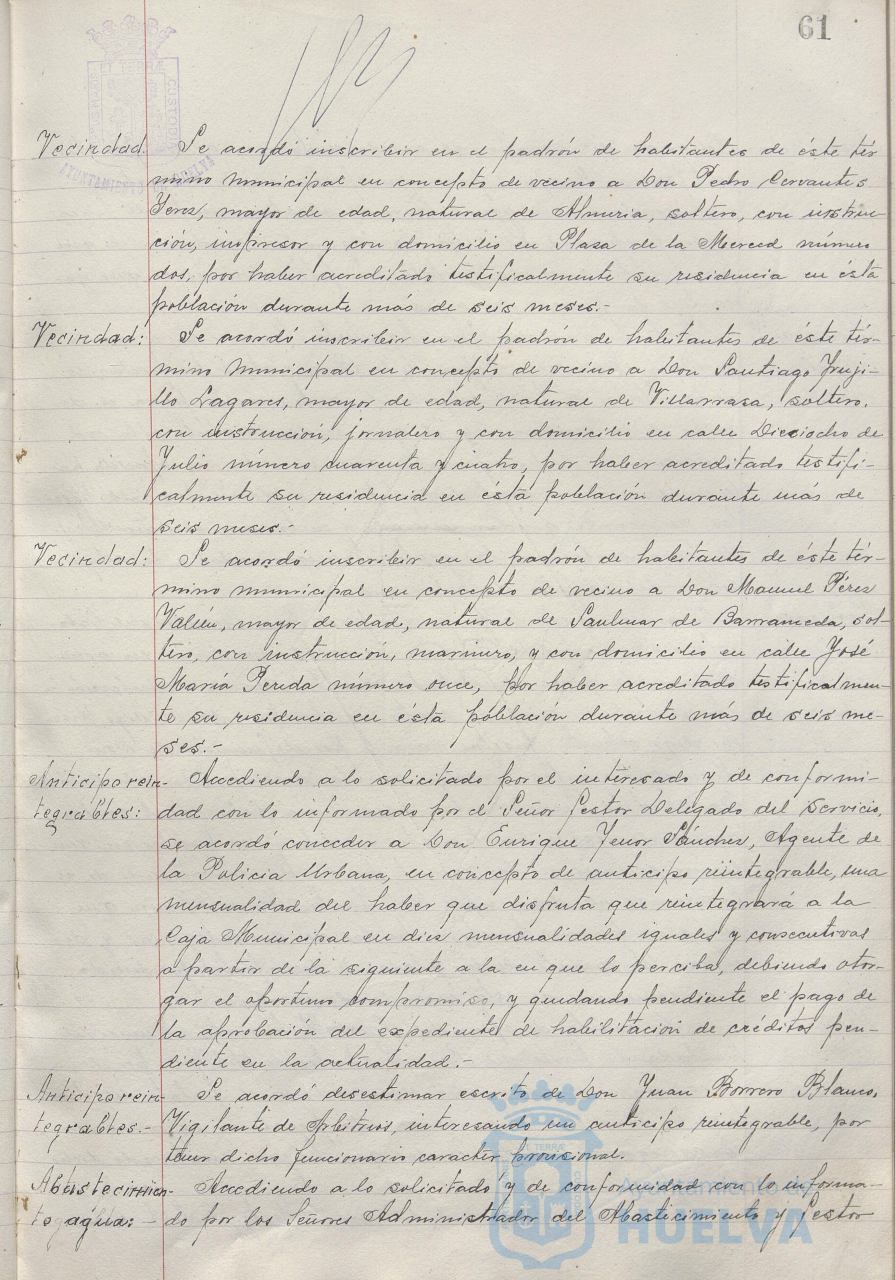 61
Vecindad. Se acordó inscribir en el padrón de habitantes de éste tér-
mino municipal en concepto de vecino a Don Pedro Cervantes
Yerez, mayor de edad, natural de Almeria, soltero, con instruc-
ción, impresor y con domicilio en Plaza de la Merced número
dos, por haber acreditado testificalmente su residencia en ésta
población durante más de seis meses.-
Vecindad: Se acordó inscribir en el padrón de habitantes de éste tér-
mino municipal en concepto de vecino a Don Santiago Truji-
llo Lagares, mayor de edad, natural de Villarrasa, soltero,
con instrucción, jornalero y con domicilio en calle Dieciocho de
Julio número cuarenta y cuatro, por haber acreditado testifi-
calmente su residencia en ésta población durante más de
seis meses.-
Vecindad: Se acordó inscribir en el padrón de habitantes de éste tér-
mino municipal en concepto de vecino a Don Manuel Pérez
mayor de edad, natural de Sanlucar de Barrameda, sol-
tero, con instrucción, marinero, y con domicilio en calle José
María Pereda número once, por haber acreditado testificalmen-
te su residencia en ésta población durante más de seis me-
ses.-
Anticipo rein- Accediendo a lo solicitado por el interesado y de conformi-
tegrables: dad con lo informado por el Señor Gestor Delegado del Servicio,
se acordó conceder a Don Enrique Sánchez, Agente de
la Policia Urbana, en concepto de anticipo reintegrable, una
mensualidad del haber que disfruta que reintegrará a la
Caja Municipal en diez mensualidades iguales y consecutivas
a partir de la siguiente a la en que lo perciba, debiendo otor-
gar el oportuno compromiso, y quedando pendiente el pago de
la aprobación del expediente de habilitación de créditos pen-
diente en la actualidad.-
Anticipo rein- Se acordó desestimar escrito de Don Juan Borrero Blanco,
tegrables.- Vigilante de Arbitrios, interesando un anticipo reintegrable, por
tener dicho funcionario caracter provisional.
Abastecimien- Accediendo a lo solicitado y de conformidad con lo informa-
to agua:- do por los Señores Administrador del Abastecimiento y Gestor
Ayuntamiento de
HUELVA